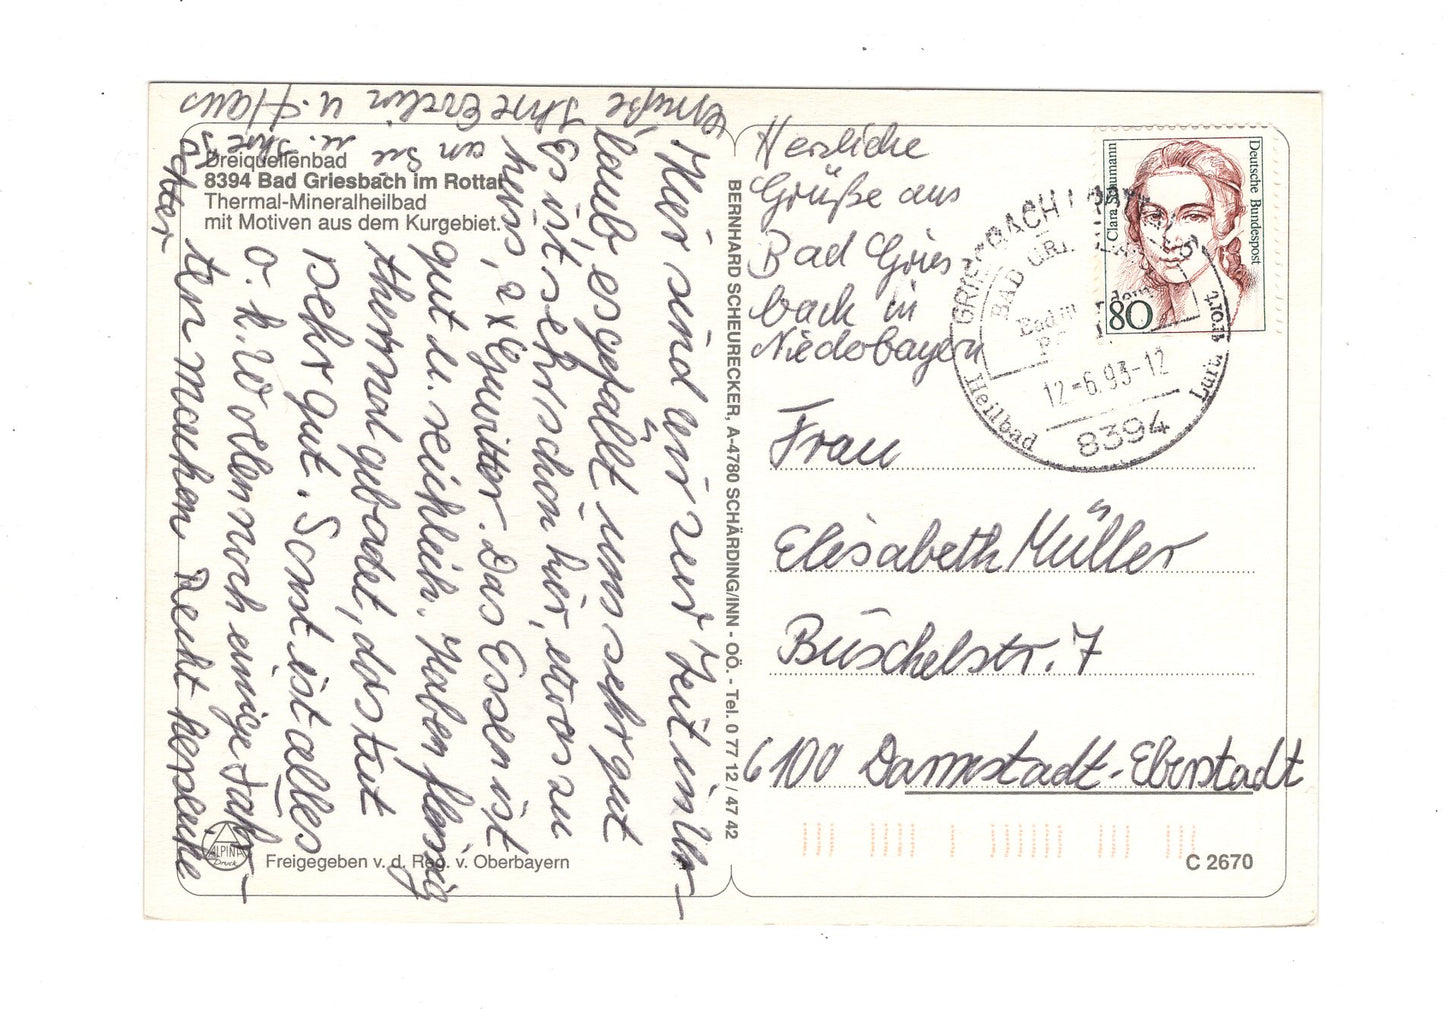 Dreiquellenbad
8394 Bad Griesbach im Rottal
Thermal-Mineralheilbad
mit Motiven aus dem Kurgebiet.
Herzliche
Grüße aus
Bad Gries
bach in
Niederbayern
Hier sind wir zur Zeit in Ur-
laub, es gefällt uns sehr gut
Es ist sehr schön hier, etwas zu
heiss, 2x Gewitter. Das Essen ist
gut u. reichlich. Haben fleissig
thermal gebadet, das tut
sehr gut. Sonst ist alles
o.k. Wollen noch einige Fahr-
ten machen. Recht herzliche
Grüße Ihre Evelin u. Haus
an Sie u. Ihre
BERNHARD SCHEURECKER, A-4780 SCHÄRDING/INN - OÖ. - Tel. 0 77 12 / 47 42
Clara Schumann
Deutsche Bundespost
80
12-6.93-12
8394
Heilbad
Frau
Elisabeth Müller
Büschelstr. 7
6100 Darmstadt-Eberstadt
ALPINA
Druck
Freigegeben v. d. Reg. v. Oberbayern
C 2670